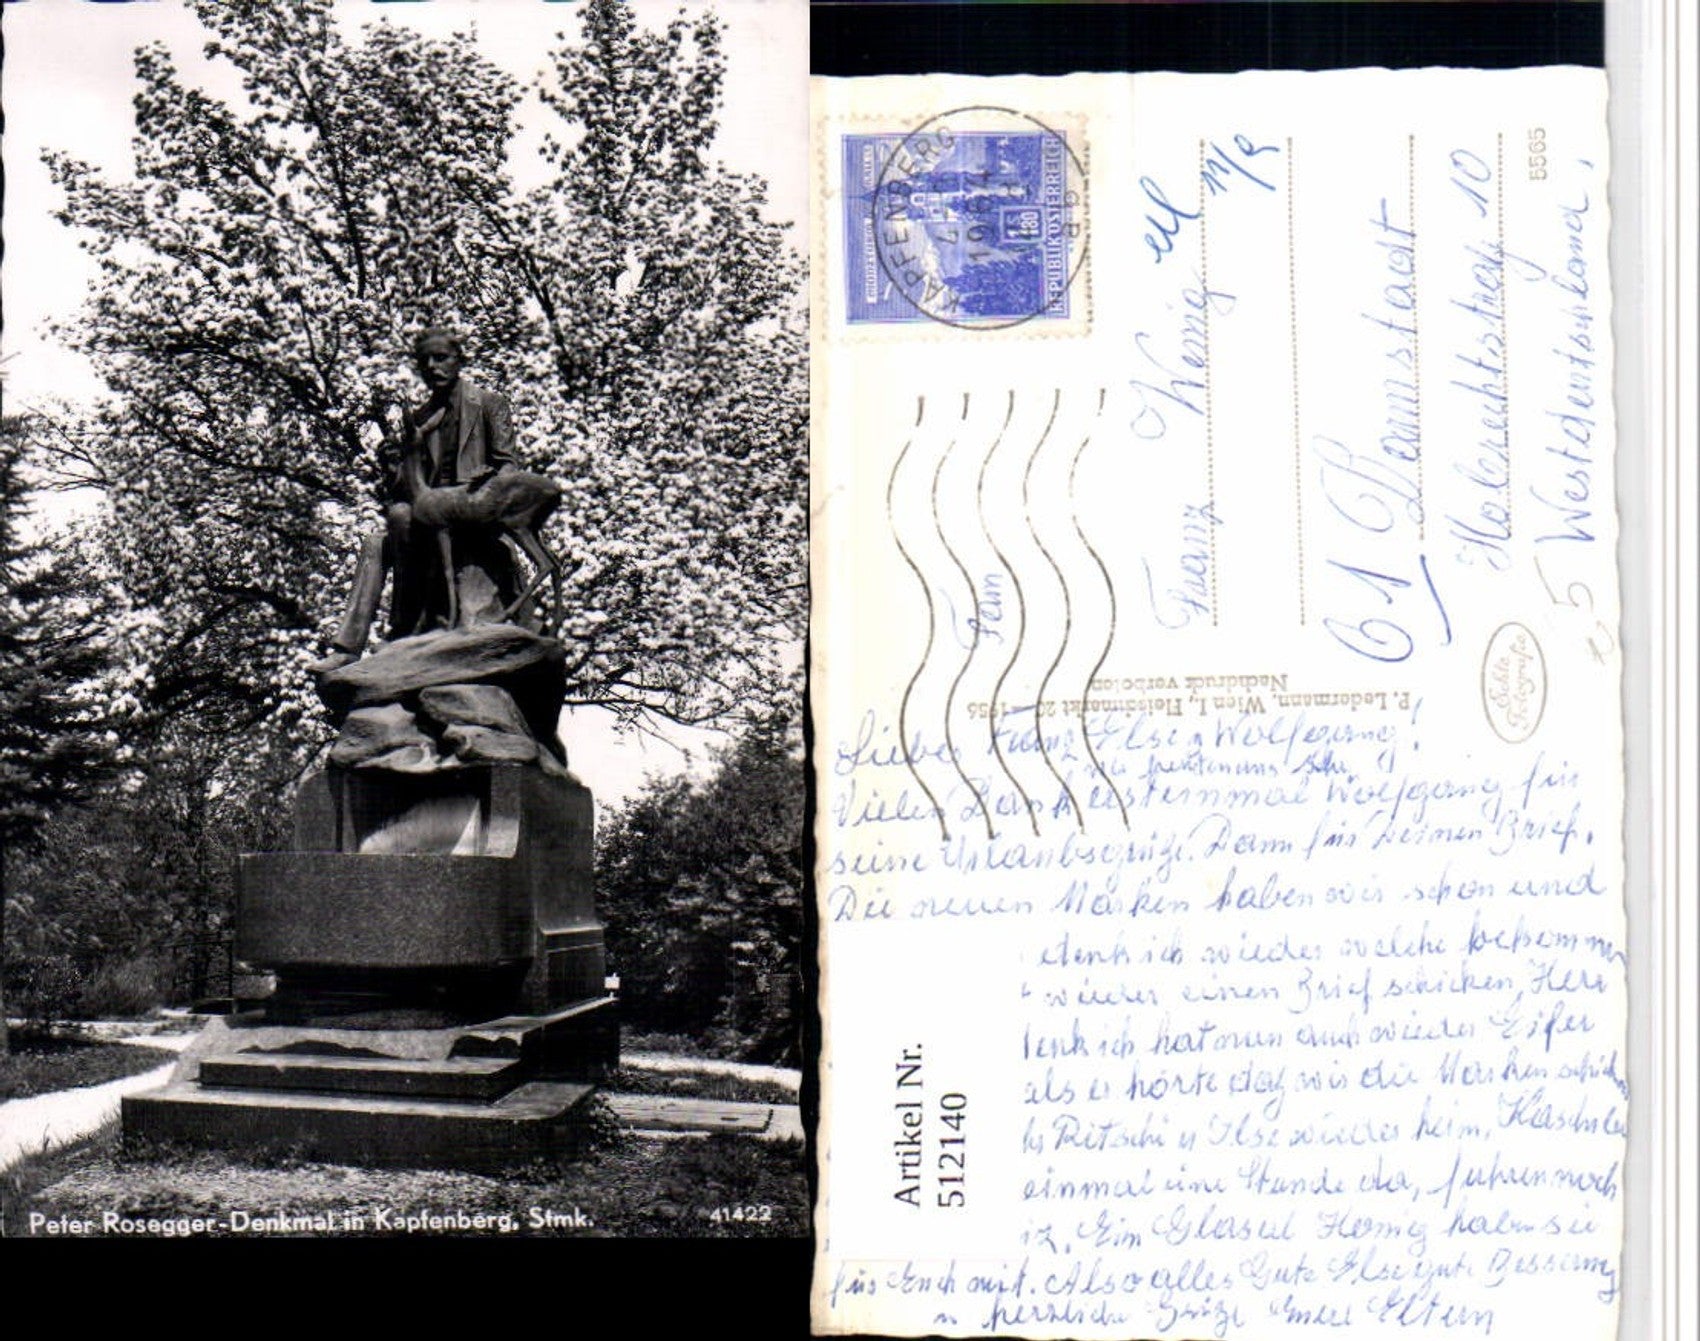 Peter Rosegger-Denkmal in Kapfenberg, Stmk.
41422
KAPFENBERG
REPUBLIK ÖSTERREICH
S 1.80
Fam
Franz
61
Holzrechtstraße 10
Westdeutschland
5565
Echte Fotografie
P. Ledermann, Wien I., Fleischmarkt 20 - 1956
Nachdruck verboten
Lieber Franz Else u Wolfgang!
Vielen Dank erst einmal Wolfgang für
seine Urlaubsgrüße. Dann für Deinen Brief.
Die neuen Marken haben wir schon und
denk ich wieder welche bekommen
wieder einen Brief schicken, Herr
denk ich hat nun auch wieder Eifer
als er hörte daß wir die Marken
Ritschi u Ilse wieder heim,
einmal eine Stunde da, fuhren noch
Ein Glaserl Honig haben sie
für Euch mit. Also alles Gute Else gute Besserung
u herzliche Grüße Eure Eltern
Artikel Nr.
512140